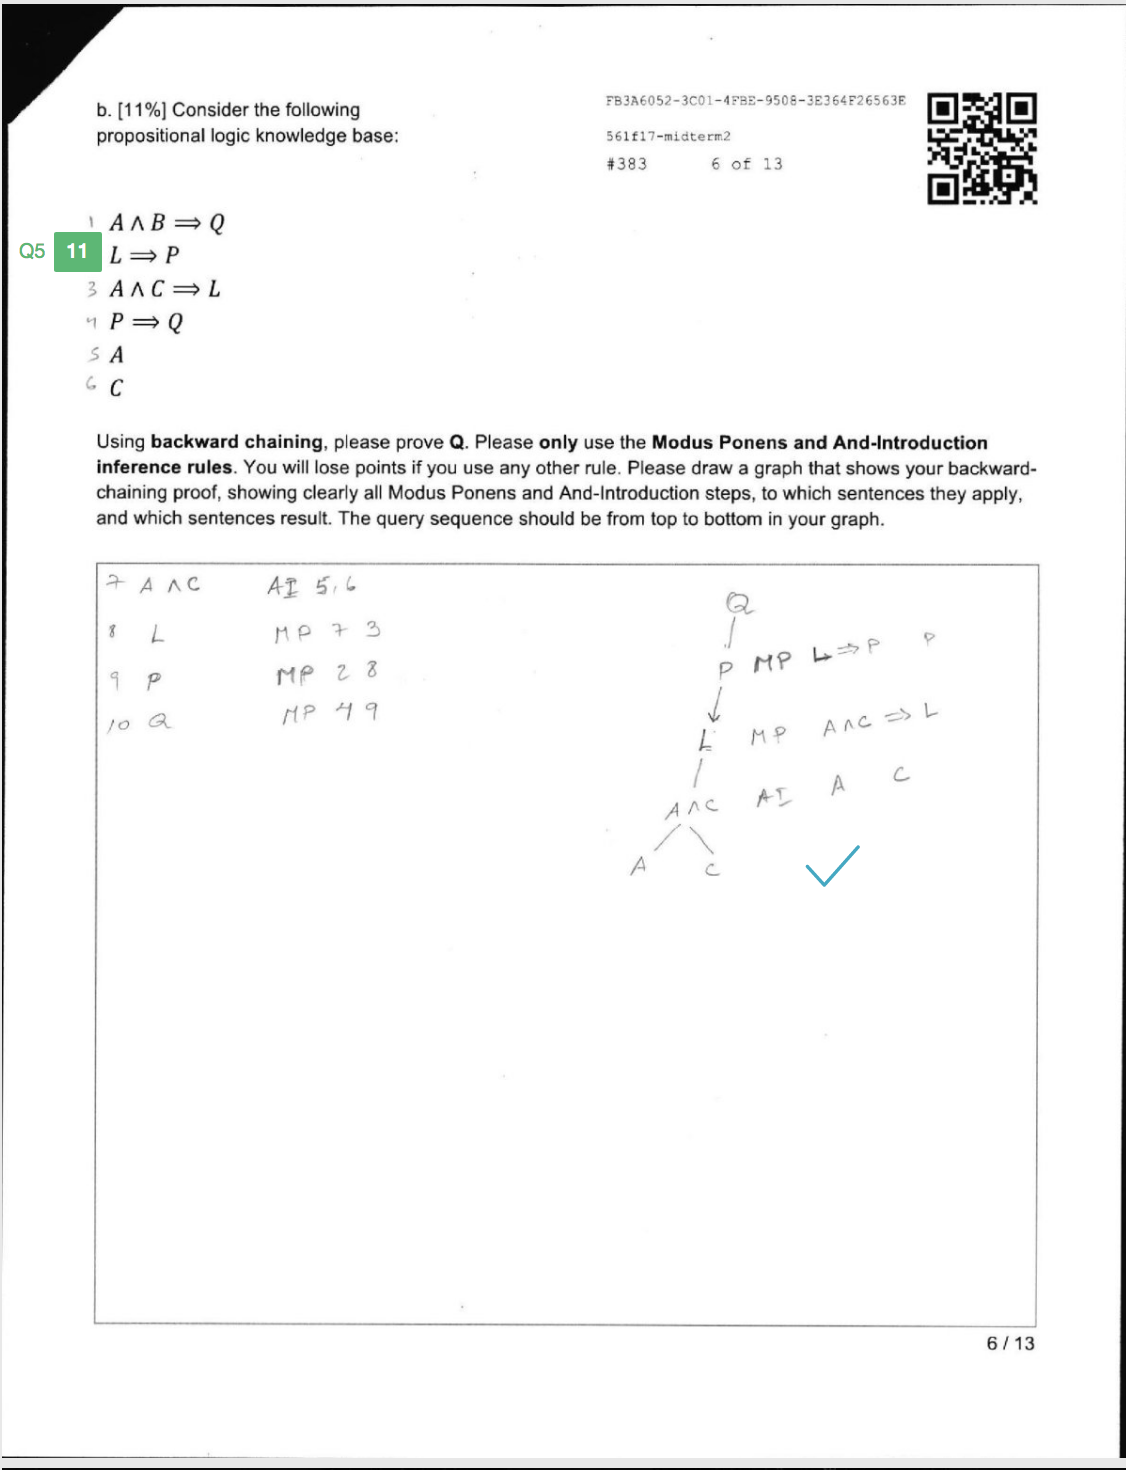 b. [11%] Consider the following
propositional logic knowledge base:
FB3A6052-3C01-4FBE-9508-3E364F26563E
561f17-midterm2
#383 6 of 13
1 A ∧ B ⟹ Q
Q5 11 L ⟹ P
3 A ∧ C ⟹ L
4 P ⟹ Q
5 A
6 C
Using backward chaining, please prove Q. Please only use the Modus Ponens and And-Introduction
inference rules. You will lose points if you use any other rule. Please draw a graph that shows your backward-
chaining proof, showing clearly all Modus Ponens and And-Introduction steps, to which sentences they apply,
and which sentences result. The query sequence should be from top to bottom in your graph.
7 A ∧ C AI 5, 6
8 L MP 7 3
9 P MP 2 8
10 Q MP 4 9
Q
P MP L ⇒ P P
L MP A ∧ C ⇒ L
A ∧ C AI A C
A C
6 / 13